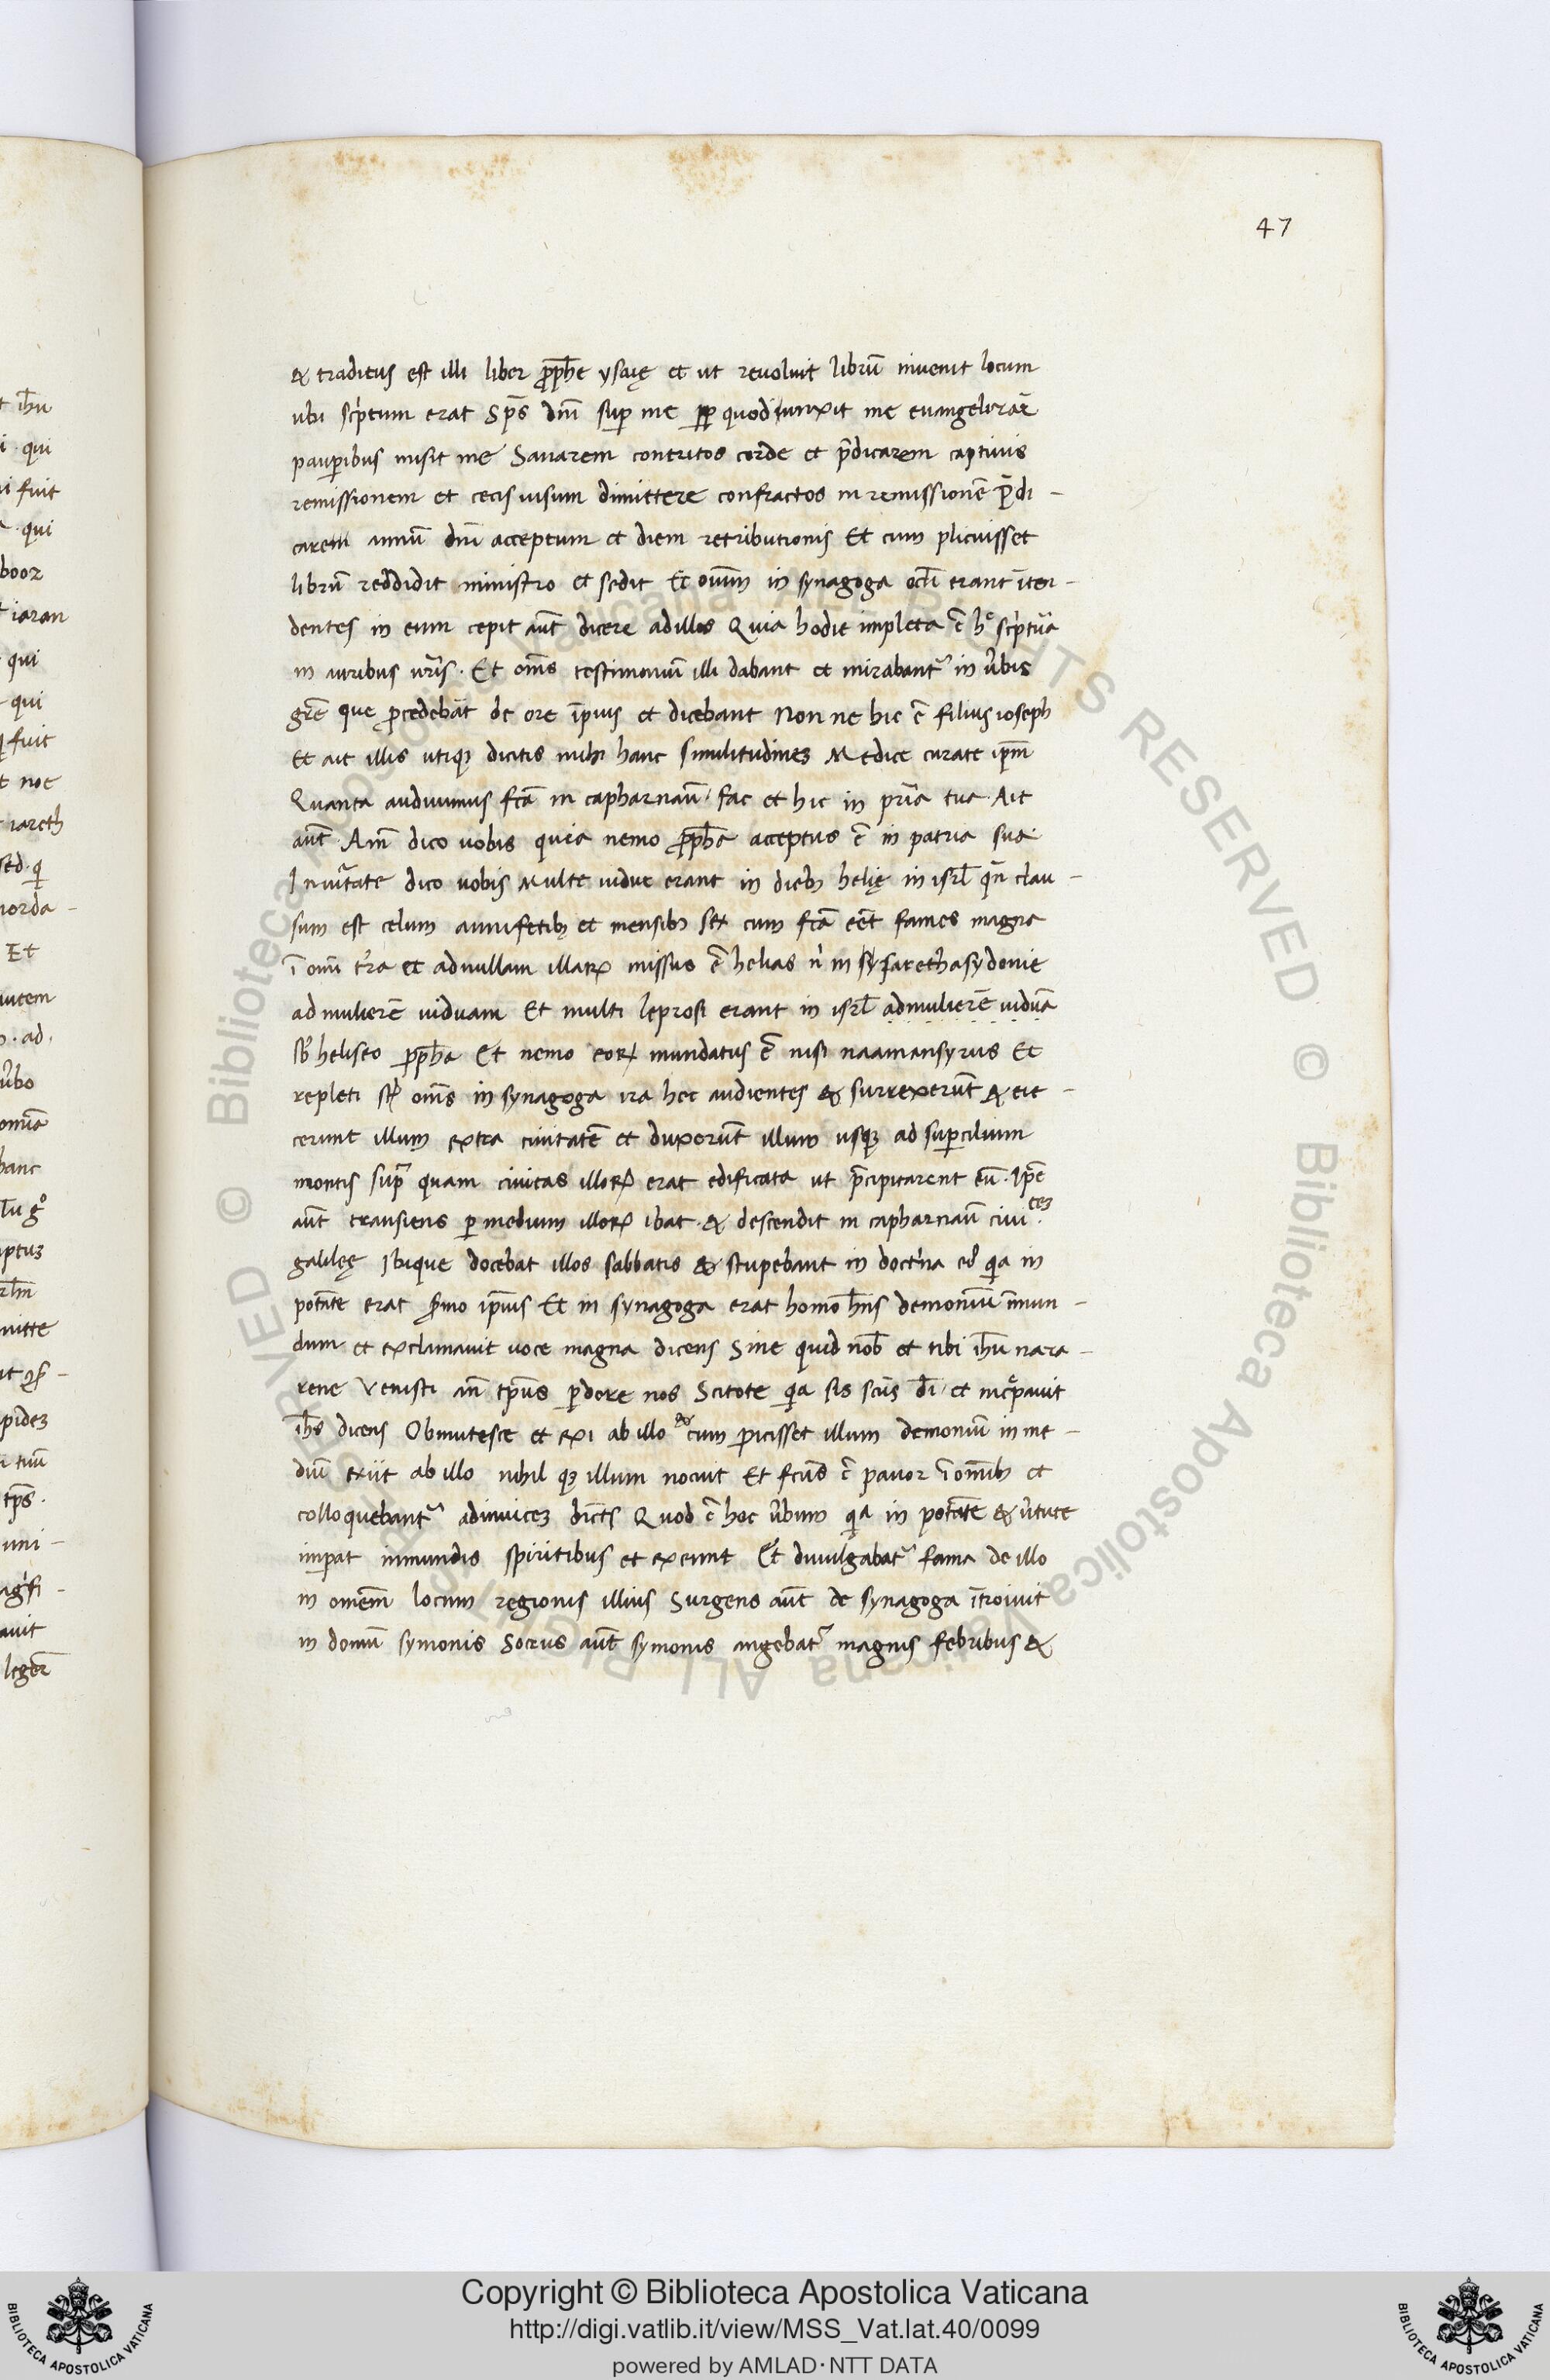 47
& traditus est illi liber ꝓph̄e ysaię et ut revoluit librū invenit locum
ubi sc̓ptum erat Sp̄s dnī sup̱ me ꝓp quod iunxit me evangelizar̄
paup̱ibus misit me Sanarem contritos corde et p̄dicarem captivis
remissionem et cecis visum dimittere confractos in remissionē p̄di-
carem annū dnī acceptum et diem retributionis Et cum plicuisset
librū reddidit ministro et sedit Et oīum in synagoga oclī erant īten-
dentes in eum cepit aūt dicere ad illos Quia hodie impleta ē hͨ sc̓ptūa
in auribus vr̄is. Et om̄s testimoniū illi dabant et mirabantᷣ in v̓bis
gr̄e que ꝓcedebāt de ore īpius et dicebant Non ne hic ē filius ioseph
Et ait illis utiqꝫ dicitis mihi hanc similitudineꝫ Medice curate ipm̄
Quanta audivimus fcā in capharnaū. fac et hic in pr̄ia tua. Ait
aūt. Am̄ dico vobis quia nemo ꝓph̄a acceptus ē in patria sua.
In v̓itate dico vobis Multe vidue erant in diebꝫ helię in isrl̄ qn̄ clau-
sum est celum annis tribꝫ et mensibꝫ sex cum fcā eēt fames magna
ī omi t̓ra et ad nullam illarꝝ missus ē helias n̓ in sy sarethasydonie
ad mulierē viduam Et multi leprosi erant in isrl̄ ad mulierē viduā
sb̓ heliseo ꝓph̄a Et nemo eorꝝ mundatus ē nisi naamansyrus Et
repleti st̄ om̄s in synagoga ira hec audientes & surrexerūt & eie-
cerunt illum extra civitatē et duxerūt illum usqꝫ ad sup̱cilium
montis supᷓ quam civitas illorꝝ erat edificata ut p̄cipitarent eū. Ip̄e
aūt transiens p̱ medium illorꝝ ibat. & descendit in capharnaū civiteꝫ
galilęę Ibique docebat illos sabbatis & stupebant in doct̓na eꝰ q̓a in
potāte erat s̓mo ip̄ius Et in synagoga erat homo hn̄s demoniū īmun-
dum et exclamavit voce magna dicens Sine quid nob̄ et tibi ih̄u naza-
rene Venisti an̄ tp̄us p̱dere nos Scitote q̓a sis scūs dī. et inc̓pavit
ih̄s dicens Obmutesce et exi ab illo & cum p̱icisset illum demoniū in me-
diū exiit ab illo nihil qꝫ illum nocuit Et fcūs ē pavor ī omībꝫ et
colloquebantᷣ adinviceꝫ dicēts Quod ē hoc v̓bum q̓a in potāte & v̓tute
imp̱at inmundis spiritibus et exeunt Et divulgabatᷣ fama de illo
in omēm locum regionis illius Surgens aūt de synagoga ītroivit
in domū symonis Socrus aūt symonis angebatᷣ magnis febribus &
Copyright © Biblioteca Apostolica Vaticana
http://digi.vatlib.it/view/MSS_Vat.lat.40/0099
powered by AMLAD·NTT DATA